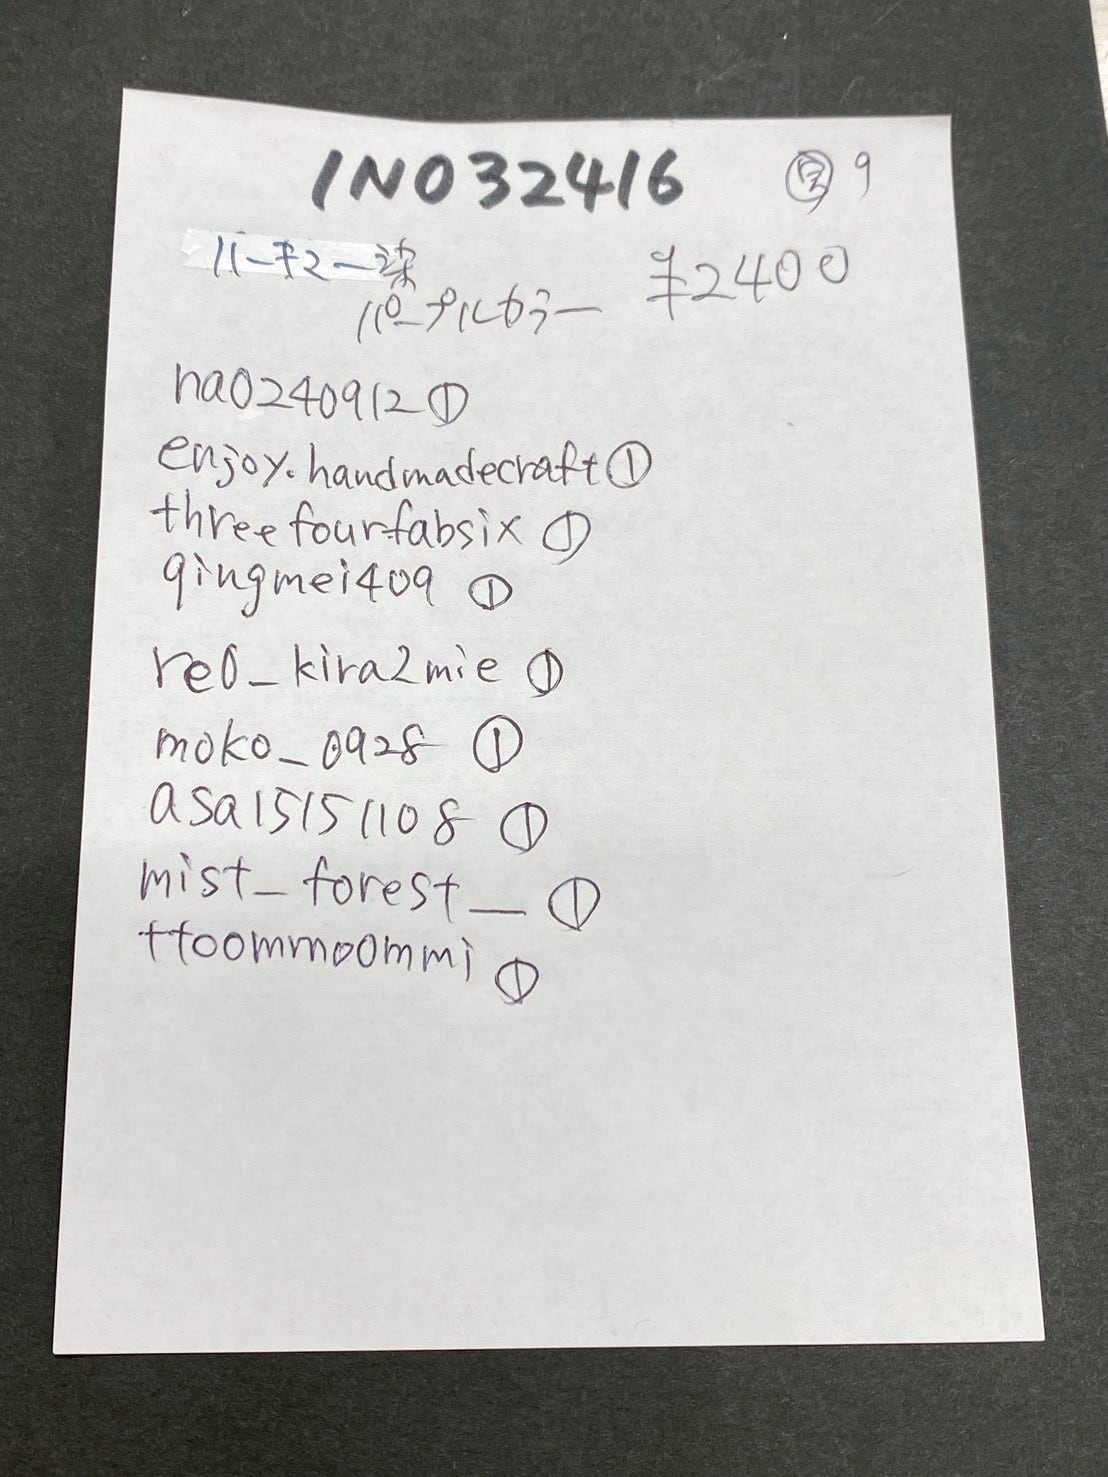 INO32416
9
¥2400
パープルカラー
na0240912①
enjoy.handmadecraft①
threefourfabsix①
qingmei409①
re0_kira2mie①
moko_0928①
asa15151108①
mist_forest_ _①
ttoommoo0mmi①